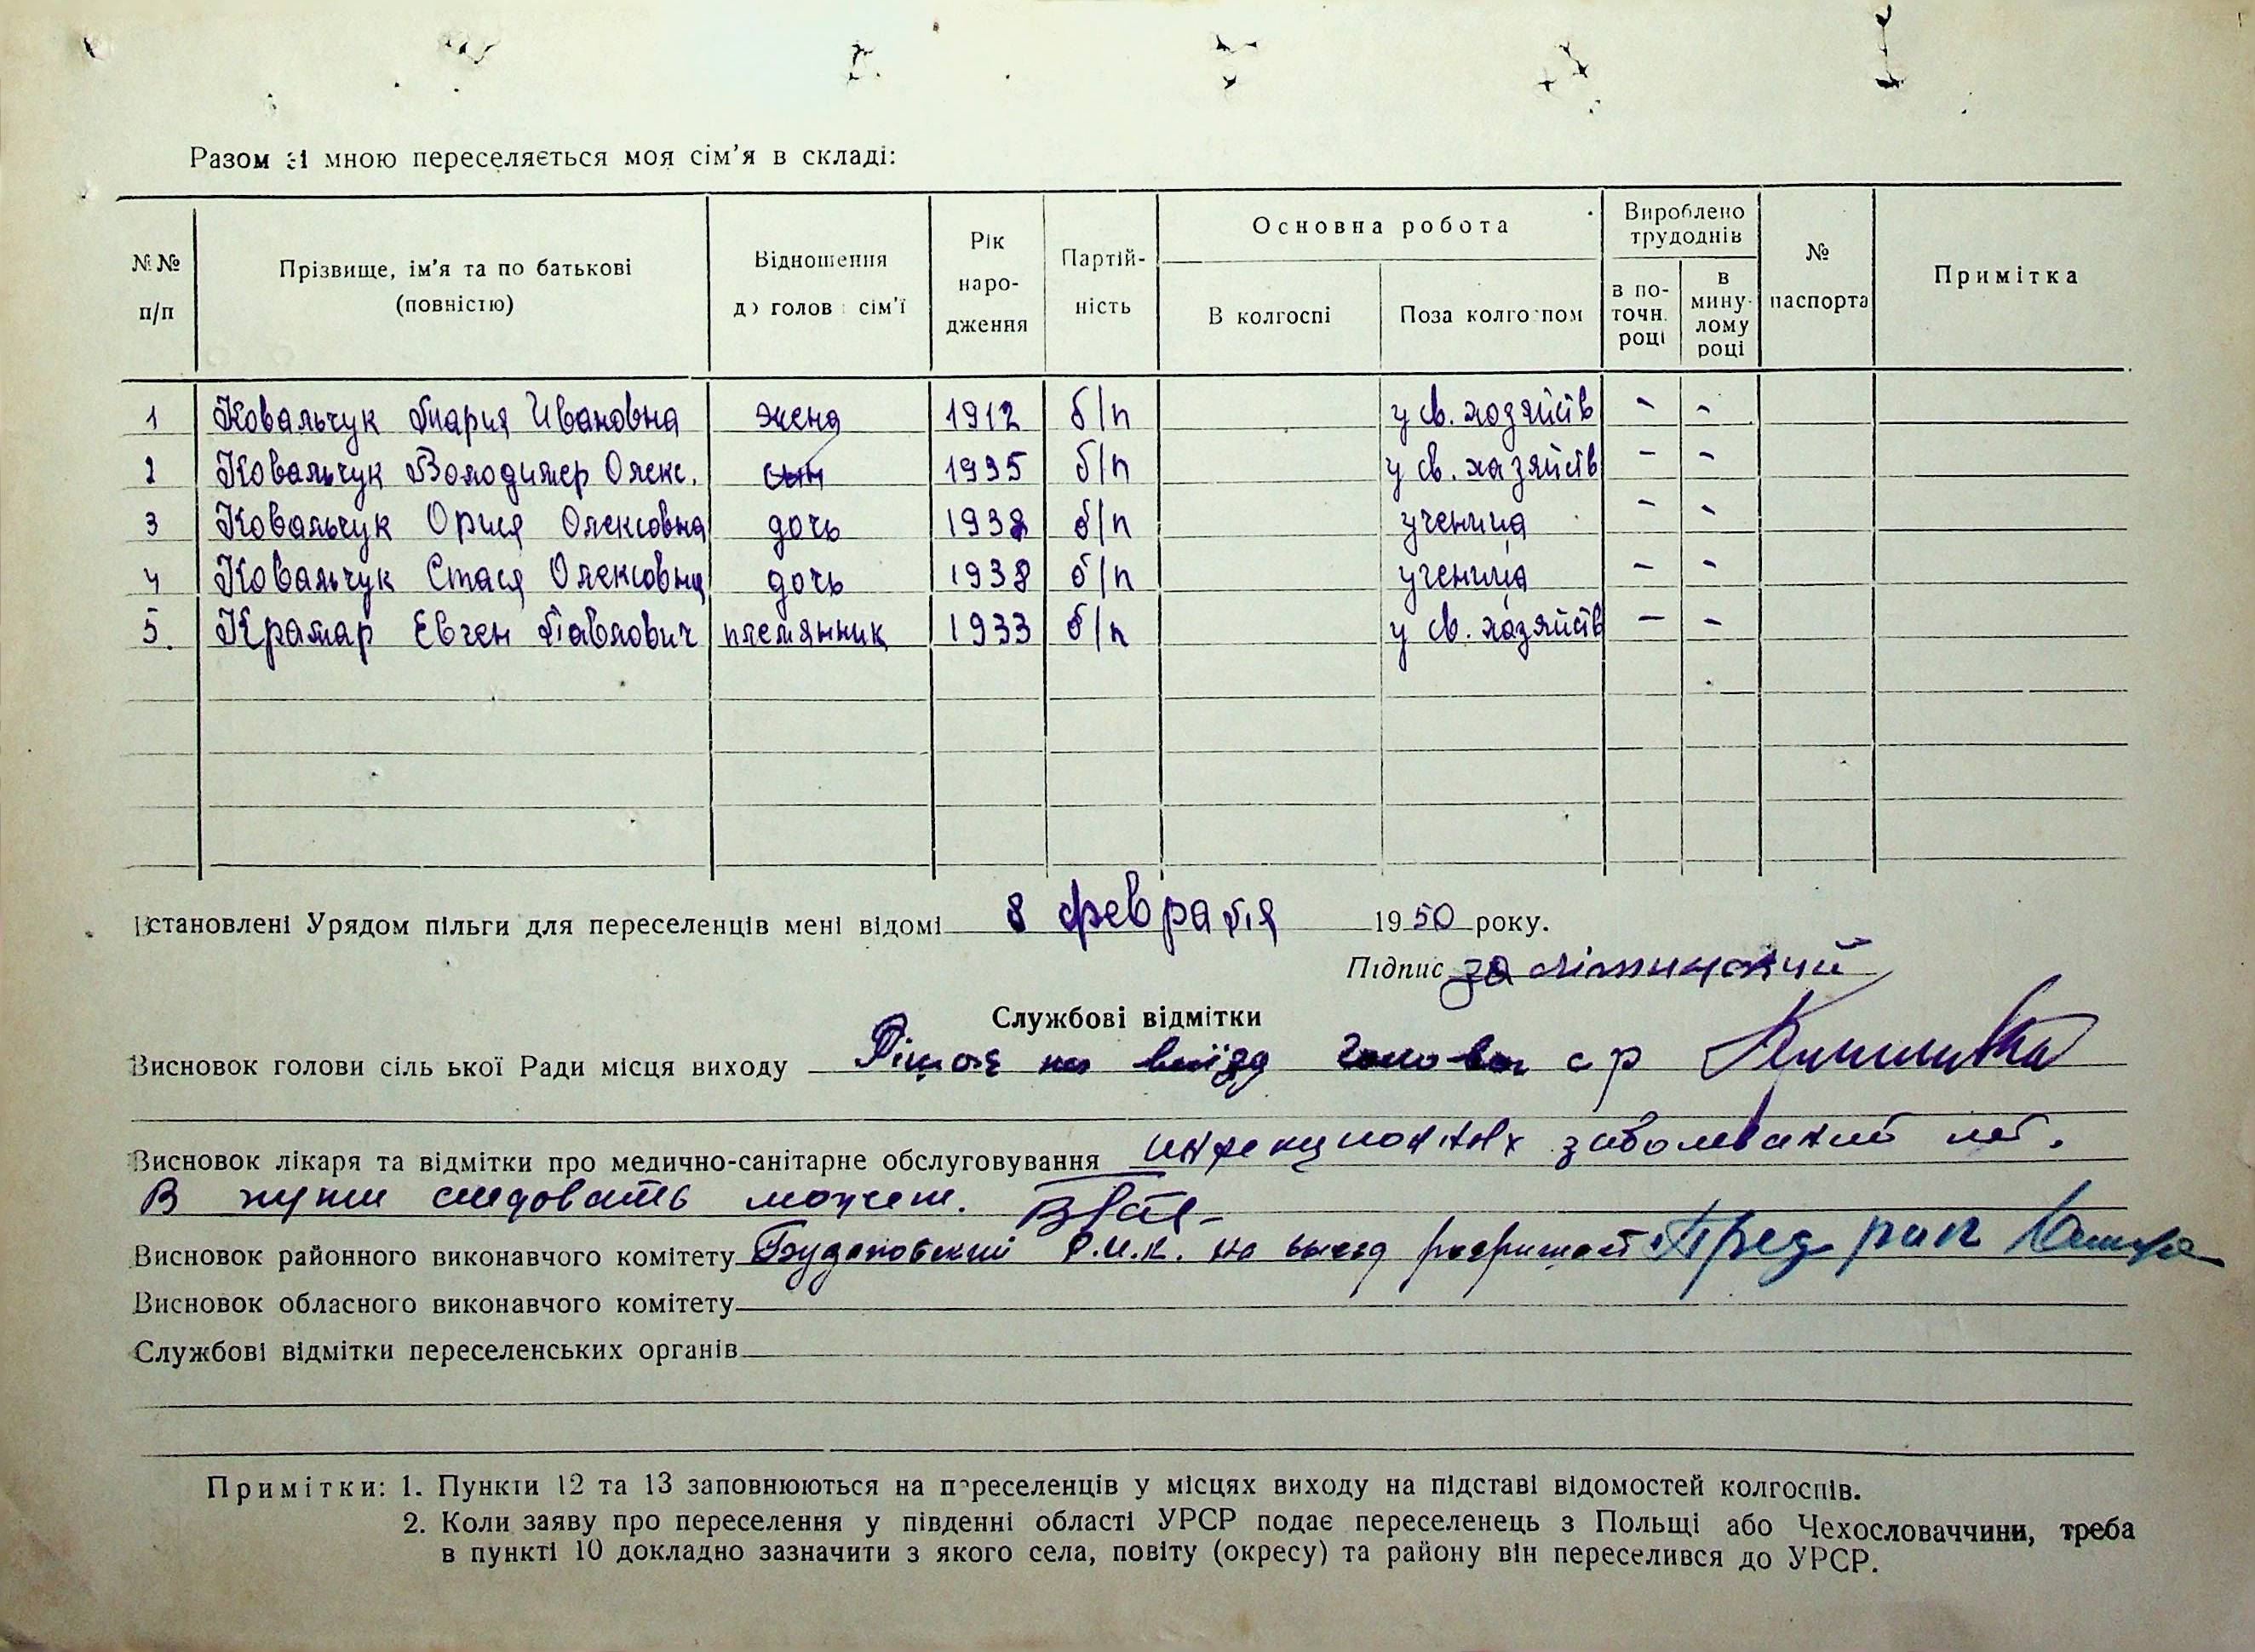 Разом зі мною переселяється моя сім’я в складі:
№№ п/п
Прізвище, ім’я та по батькові (повністю)
Відношення до голови сім’ї
Рік народження
Партійність
Основна робота
В колгоспі
Поза колгоспом
Вироблено трудоднів
в поточн. році
в минулому році
№ паспорта
Примітка
1 Ковальчук Мария Ивановна жена 1912 б/п у св. хозяйств - -
2 Ковальчук Володимер Олекс. сын 1935 б/п у св. хазяйств - -
3 Ковальчук Орися Олексовна дочь 1938 б/п ученица - -
4 Ковальчук Стася Олексовна дочь 1938 б/п ученица - -
5. Крамар Евген Павлович племянник 1933 б/п у св. хозяйств - -
Встановлені Урядом пільги для переселенців мені відомі 8 февраля 1950 року.
Підпис за
Службові відмітки
Висновок голови сільської Ради місця виходу на виїзд голова с р
Висновок лікаря та відмітки про медично-санітарне обслуговування инфекционных заболеваний нет.
В пути следовать может.
Висновок районного виконавчого комітету Будановский Р.И.К. на выезд разришает Пред рик
Висновок обласного виконавчого комітету
Службові відмітки переселенських органів
Примітки: 1. Пункти 12 та 13 заповнюються на переселенців у місцях виходу на підставі відомостей колгоспів.
2. Коли заяву про переселення у південні області УРСР подає переселенець з Польщі або Чехословаччини, треба
в пункті 10 докладно зазначити з якого села, повіту (окресу) та району він переселився до УРСР.